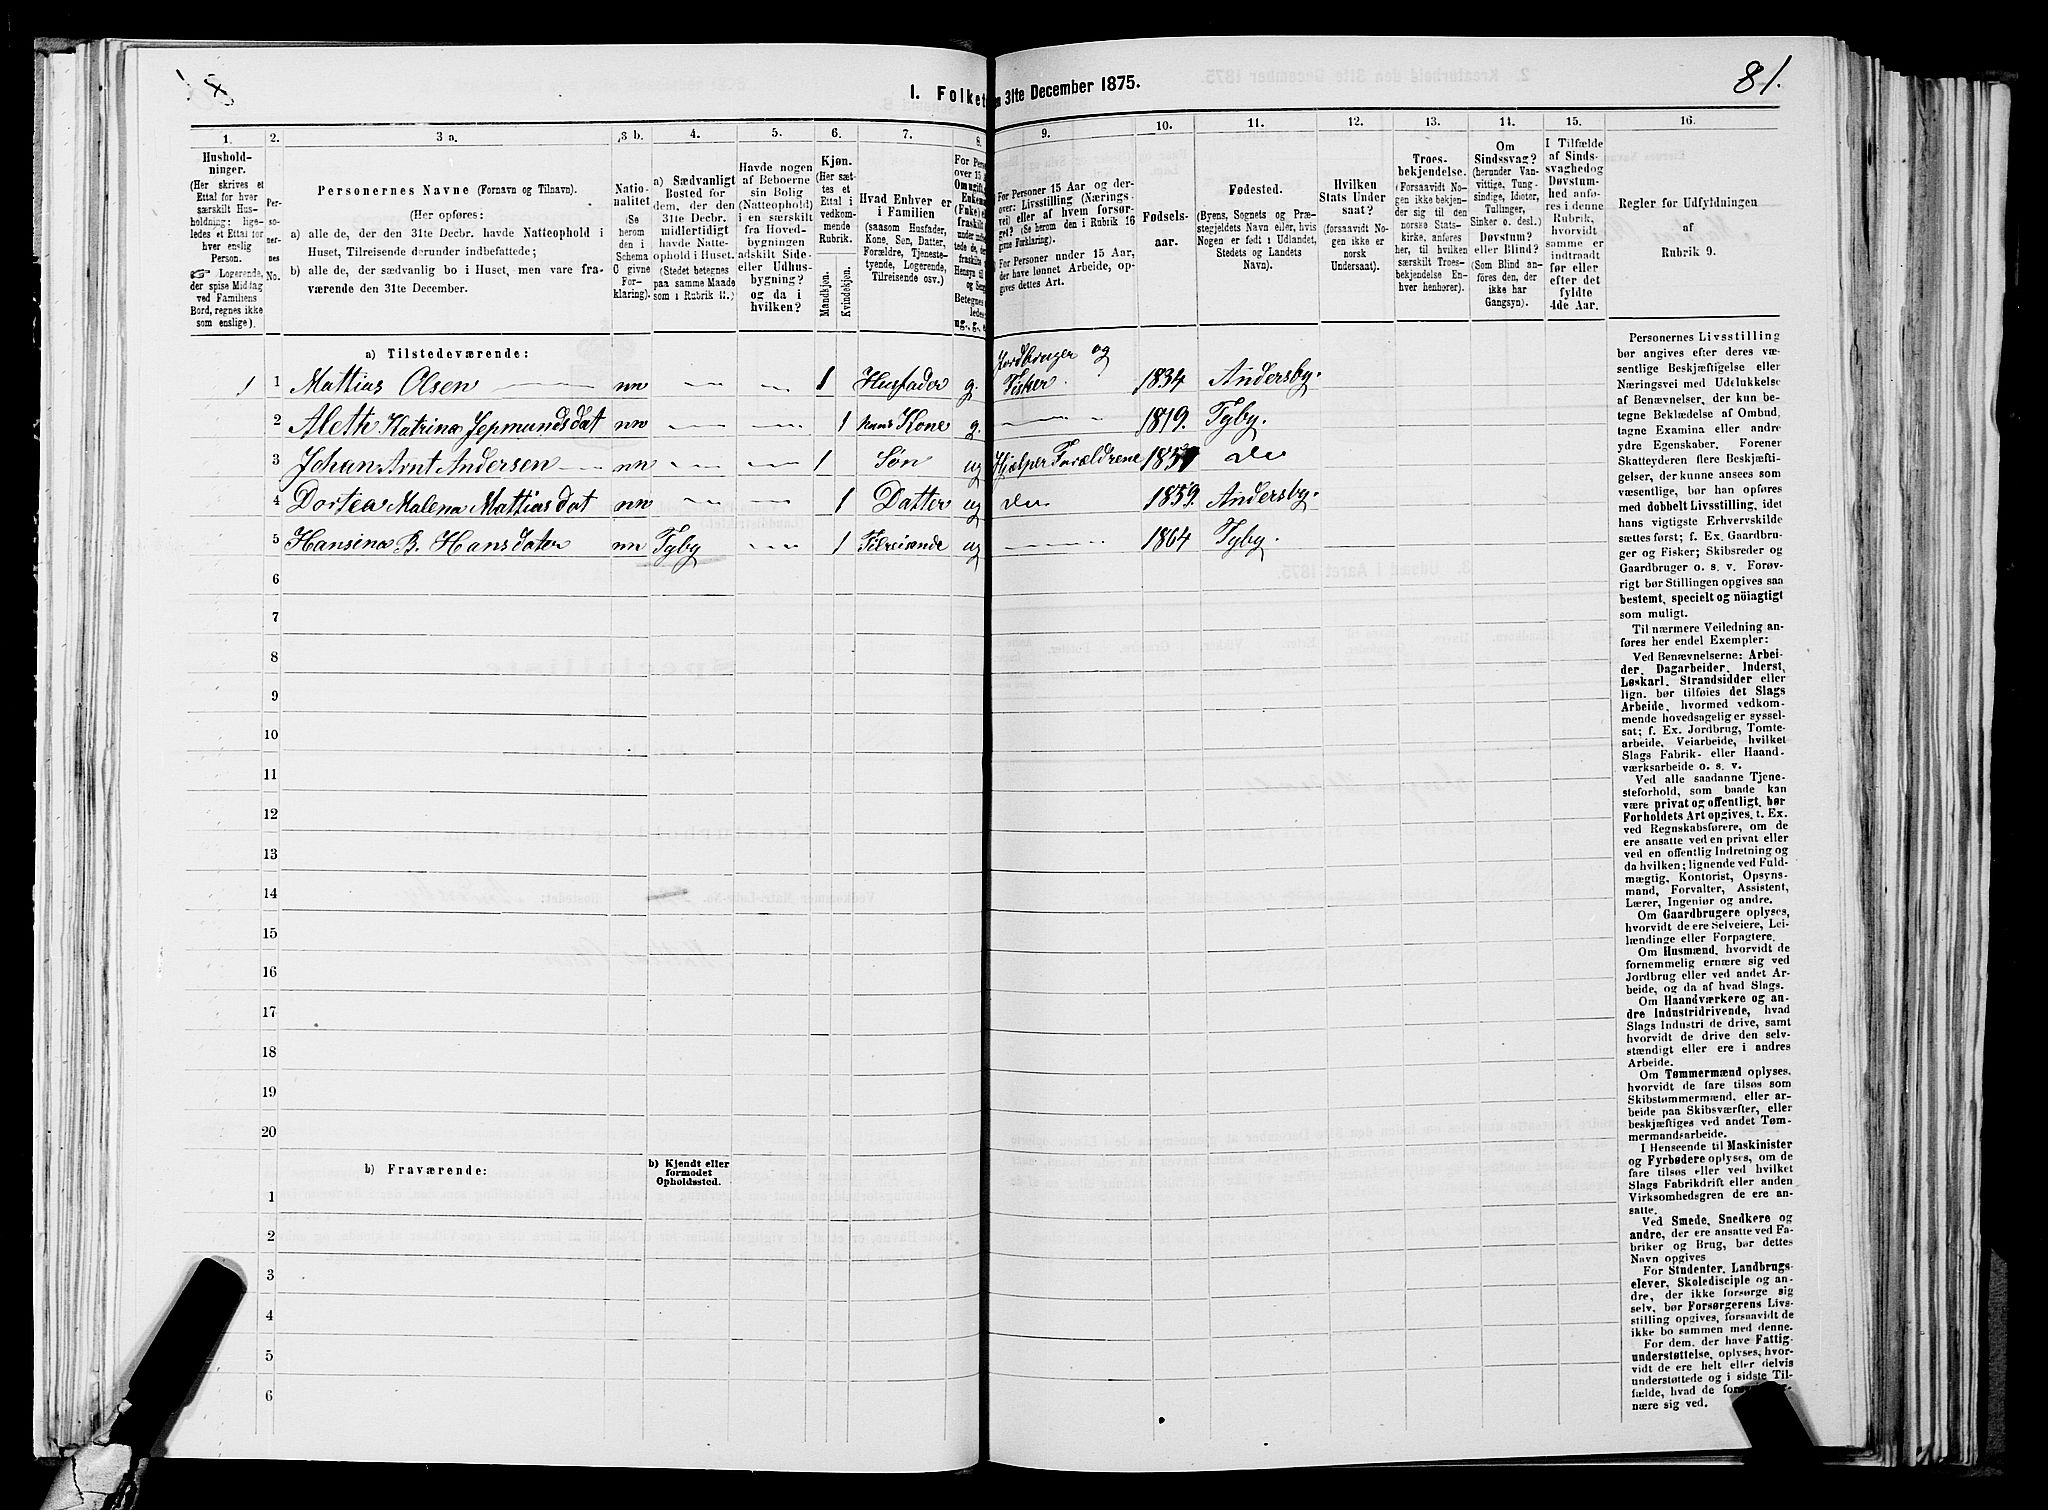 x
81.
I. Folket
en 31te December 1875.
1. 2. 3 a. 3 b. 4. 5. 6. 7. 8. 9. 10. 11. 12. 13. 14. 15. 16.
Hushold-
ninger.
(Her skrives et
Ettal for hver
særskilt Hus-
holdning; lige-
ledes et Ettal for
hver enslig
Person.
☞ Logerende,
der spise Middag
ved Familiens
Bord, regnes ikke
som enslige).
Per-
so-
ner-
nes
No.
Personernes Navne (Fornavn og Tilnavn).
(Her opføres:
a) alle de, der den 31te Decbr. havde Natteophold i
Huset, Tilreisende derunder indbefattede;
b) alle de, der sædvanlig bo i Huset, men vare fra-
værende den 31te December.
Natio-
nalitet
(Se
herom
den i
Schema
C givne
For-
klaring).
a) Sædvanligt
Bosted for
dem, der den
31te Decbr.
midlertidigt
havde Natte-
ophold i Huset.
(Stedet betegnes
paa samme Maade
som i Rubrik 11.)
Havde nogen
af Beboerne
sin Bolig
(Natteophold)
i en særskilt
fra Hoved-
bygningen
adskilt Side-
eller Udhus-
bygning?
og da i
hvilken?
Kjøn.
(Her sæt-
tes et
Ettal i
vedkom-
mende
Rubrik.
Mandkjøn.
Kvindekjøn.
Hvad Enhver er
i Familien
(saasom Husfader,
Kone, Søn, Datter,
Forældre, Tjeneste-
tyende, Logerende,
Tilreisende osv.)
For Personer 15 Aar og der-
over: Livsstilling (Nærings-
vei) eller af hvem forsør-
get? (Se herom den i Rubrik 16
givne Forklaring).
For Personer under 15 Aar,
der have lønnet Arbeide, op-
gives dettes Art.
Fødsels-
aar.
Fødested.
(Byens, Sognets og Præ-
stegjeldets Navn eller, hvis
Nogen er født i Udlandet,
Stedets og Landets
Navn).
Hvilken
Stats Under
saat?
(forsaavidt No-
gen ikke er
norsk
Undersaat).
Troes-
bekjendelse.
(Forsaavidt No-
gen ikke bekjen-
der sig til den
norske Stats-
kirke, anføres
her, til hvilken
særskilt Troes-
bekjendelse En-
hver henhører).
Om
Sindssvag?
(herunder Van-
vittige, Tung-
sindige, Idioter,
Tullinger,
Sinker o. desl.)
Døvstum?
eller Blind?
(Som Blind an-
føres den, der
ikke har
Gangsyn).
I Tilfælde
af Sinds-
svaghed og
Døvstum-
hed anfø-
res i denne
Rubrik,
hvorvidt
samme er
indtraadt
før eller
efter det
fyldte
4de Aar.
Regler for Udfyldningen
af
Rubrik 9.
a) Tilstedeværende:
Jordbruger og
1 1 Mattias Olsen nn 1 Husfader g. Fisker. 1834 Andersby.
2 Aleth Katrina Jepmundsdat nn 1 hans Kone g. 1819. Tyby.
3 Johan Arnt Andersen nn 1 Søn ug Hjælper Forældrene do
4 Dortea Malena Mattiasdat nn 1 Datter ug do 1859. Andersby.
5 Hansena B. Hansdater nn Tyby 1 Tilreisende ug 1864 Tyby.
6
7
8
9
10
11
12
13
14
15
16
17
18
19
20
b) Fraværende:
b) Kjendt eller
formodet
Opholdssted.
1
2
3
4
5
6
Personernes Livsstilling
bør angives efter deres væ-
sentlige Beskjæftigelse eller
Næringsvei med Udelukkelse
af Benævnelser, der kun be-
tegne Beklædelse af Ombud,
tagne Examina eller andre
ydre Egenskaber. Forener
Skatteyderen flere Beskjæfti-
gelser, der kunne ansees som
væsentlige, bør han opføres
med dobbelt Livsstilling, idet
hans vigtigste Erhvervskilde
sættes først; f. Ex. Gaardbru-
ger og Fisker; Skibsreder og
Gaardbruger o. s. v. Forøv-
rigt bør Stillingen opgives saa
bestemt, specielt og nöiagtigt
som muligt.
Til nærmere Veiledning an-
føres her endel Exempler:
Ved Benævnelserne: Arbei-
der, Dagarbeider, Inderst,
Løskarl, Strandsidder eller
lign. bør tilføies det Slags
Arbeide, hvormed vedkom-
mende hovedsagelig er syssel-
sat; f. Ex. Jordbrug, Tomte-
arbeide, Veiarbeide, hvilket
Slags Fabrik- eller Haand-
værksarbeide o. s. v.
Ved alle saadanne Tjene-
steforhold, som baade kan
være privat og offentligt, bør
Forholdets Art opgives, t. Ex.
ved Regnskabsførere, om de
ere ansatte ved en privat eller
ved en offentlig Indretning og
da hvilken; lignende ved Fuld-
mægtig, Kontorist, Opsyns-
mand, Forvalter, Assistent,
Lærer, Ingeniør og andre.
Om Gaardbrugere oplyses,
hvorvidt de ere Selveiere, Lei-
lændinge eller Forpagtere.
Om Husmænd, hvorvidt de
fornemmelig ernære sig ved
Jordbrug eller ved andet Ar-
beide, og da af hvad Slags.
Om Haandværkere og an-
dre Industridrivende, hvad
Slags Industri de drive, samt
hvorvidt de drive den selv-
stændigt eller ere i andres
Arbeide.
Om Tømmermænd oplyses,
hvorvidt de fare tilsøs som
Skibstømmermænd, eller ar-
beide paa Skibsværfter, eller
beskjæftiges ved andet Tøm-
mermandsarbeide.
I Henseende til Maskinister
og Fyrbødere oplyses, om de
fare tilsøs eller ved hvilket
Slags Fabrikdrift eller anden
Virksomhedsgren de ere an-
satte.
Ved Smede, Snedkere og
andre, der ere ansatte ved Fa-
briker og Brug, bør dettes
Navn opgives
For Studenter, Landbrugs-
elever, Skoledisciple og an-
dre, der ikke forsørge sig
selv, bør Forsørgerens Livs-
stilling opgives, forsaavidt de
ikke bo sammen med denne.
For dem, der have Fattig-
understøttelse, oplyses, hvor-
vidt de ere helt eller delvis
understøttede og i sidste Til-
fælde, hvad de
nære sig ved.